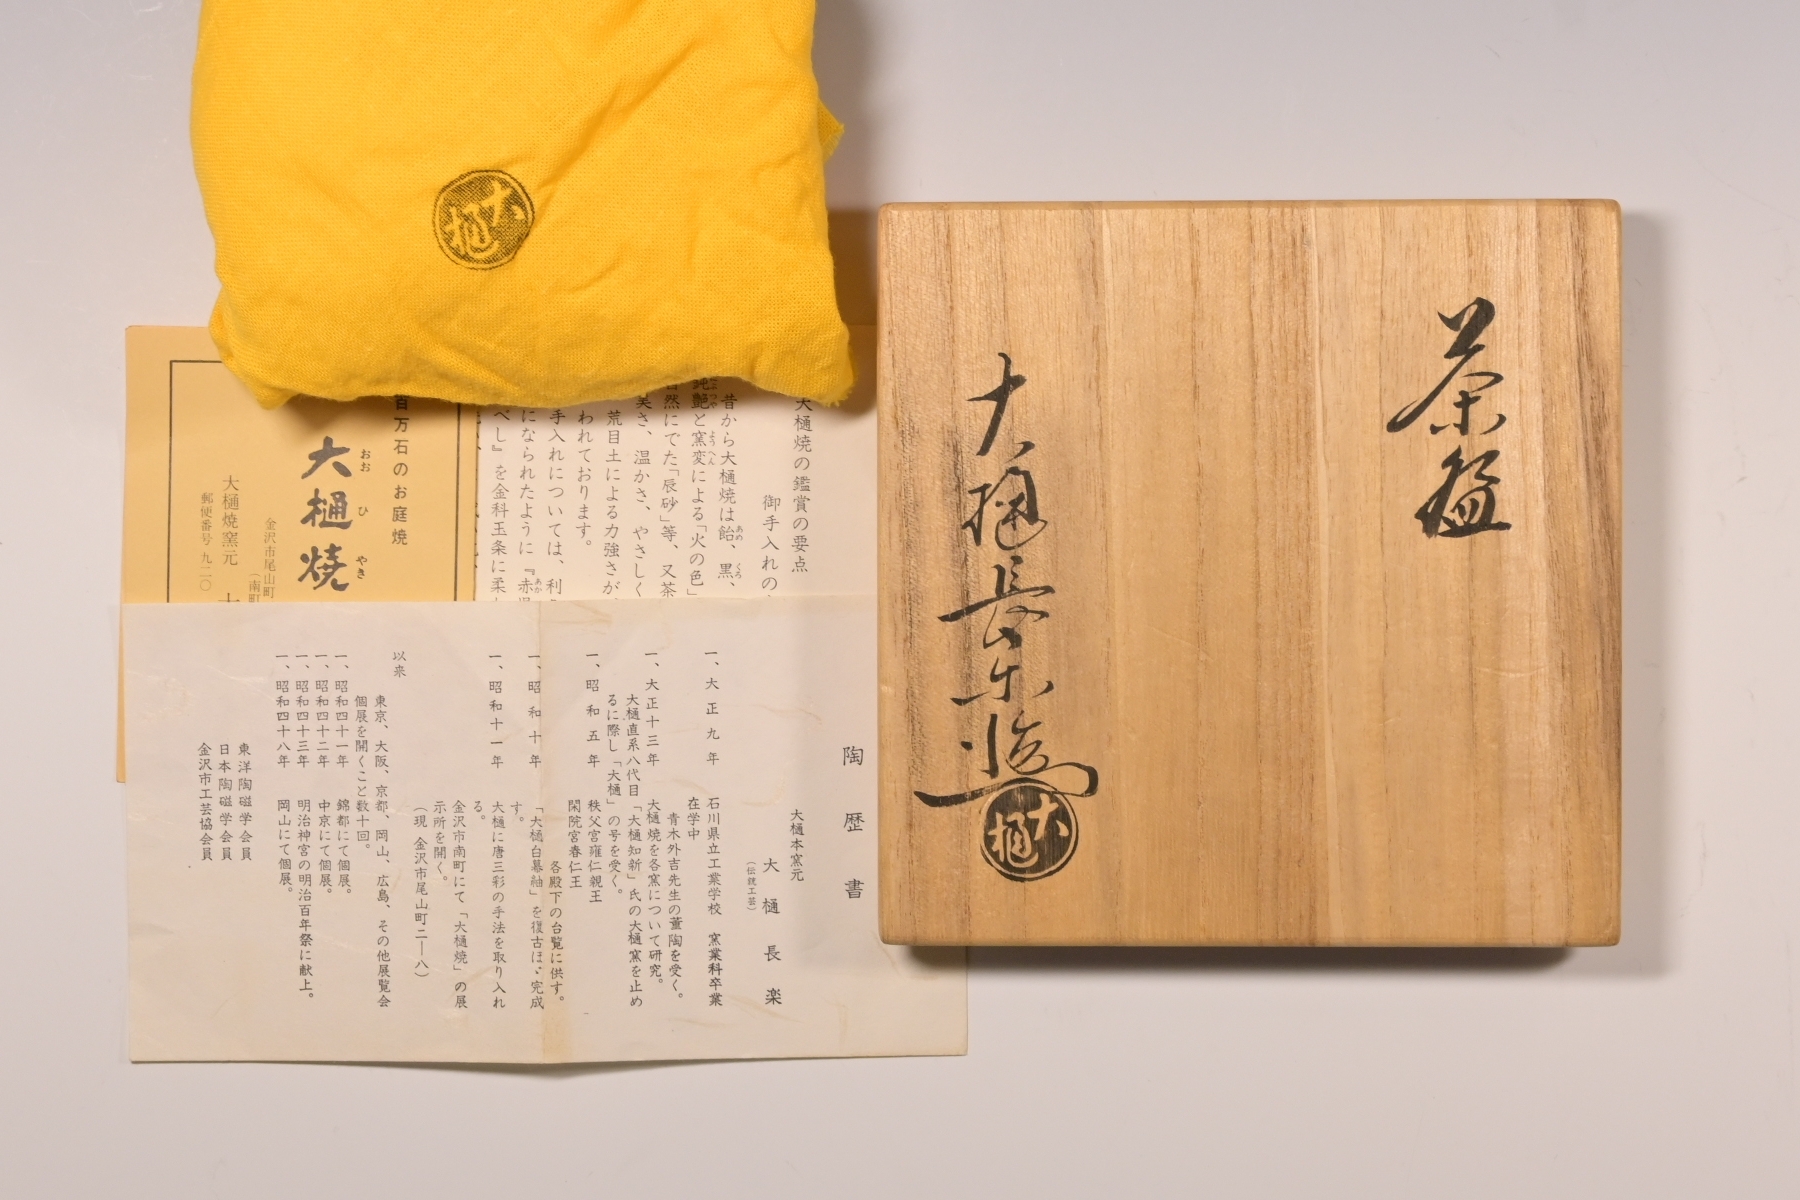 茶盌
大樋長楽造
大樋
大樋
大樋焼の鑑賞の要点
御手入れの
昔から大樋焼は飴、黒、
艶と窯変による「火の色」
然にでた「辰砂」等、又茶
美さ、温かさ、やさしく
荒目土による力強さが
われております。
手入れについては、利
になられたように『赤
べし』を金科玉条に柔
百万石のお庭焼
大樋焼
おおひやき
金沢市尾山町
(南町
大樋焼窯元
郵便番号 九二〇
陶歴書
大樋本窯元
大樋長楽
(伝統工芸)
一、大正九年 石川県立工業学校 窯業科卒業
在学中
青木外吉先生の薫陶を受く。
一、大正十三年 大樋焼を各窯について研究。
大樋直系八代目「大樋知新」氏の大樋窯を止め
るに際し「大樋」の号を受く。
一、昭和五年 秩父宮雍仁親王
閑院宮春仁王
各殿下の台覧に供す。
一、昭和十年 「大樋白幕釉」を復古ほゞ完成
す。
一、昭和十一年 大樋に唐三彩の手法を取り入れ
る。
金沢市南町にて「大樋焼」の展
示所を開く。
(現 金沢市尾山町二―八)
以来
東京、大阪、京都、岡山、広島、その他展覧会
個展を開くこと数十回。
一、昭和四十一年 錦都にて個展。
一、昭和四十二年 中京にて個展。
一、昭和四十三年 明治神宮の明治百年祭に献上。
一、昭和四十八年 岡山にて個展。
東洋陶磁学会会員
日本陶磁学会員
金沢市工芸協会員